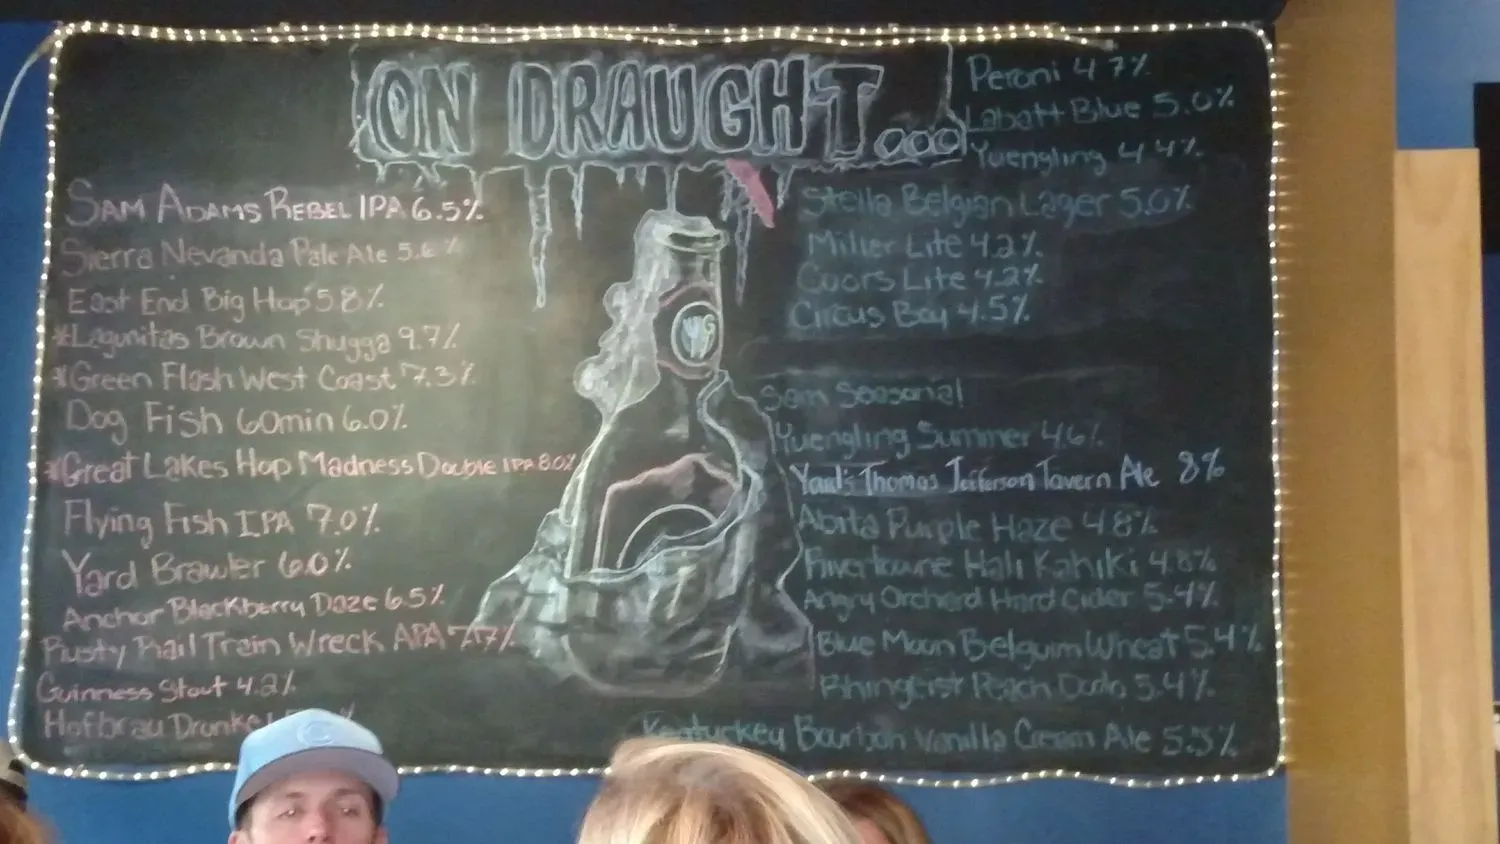 ON DRAUGHT...
SAM ADAMS REBEL IPA 6.5%
Sierra Nevanda Pale Ale 5.6%
East End Big Hop 5.8%
*Lagunitas Brown Shugga 9.7%
*Green Flash West Coast 7.3%
Dog Fish 60min 6.0%
*Great Lakes Hop Madness Double IPA 8.0%
Flying Fish IPA 7.0%
Yard Brawler 6.0%
Anchor Blackberry Daze 6.5%
Rusty Rail Train Wreck APA 7.7%
Guinness Stout 4.2%
Hofbrau Drunkel
WG
Peroni 4.7%
Labatt Blue 5.0%
Yuengling 4.4%
Stella Belgian Lager 5.0%
Miller Lite 4.2%
Coors Lite 4.2%
Circus Boy 4.5%
Sam Seasonal
Yuengling Summer 4.6%
Yard's Thomas Jefferson Tavern Ale 8%
Abita Purple Haze 4.8%
Rivertowne Hali Kahiki 4.8%
Angry Orchard Hard Cider 5.4%
Blue Moon Belguim Wheat 5.4%
Rhingeist Peach Dodo 5.4%
Keatuckey Bourbon Vanilla Cream Ale 5.5%